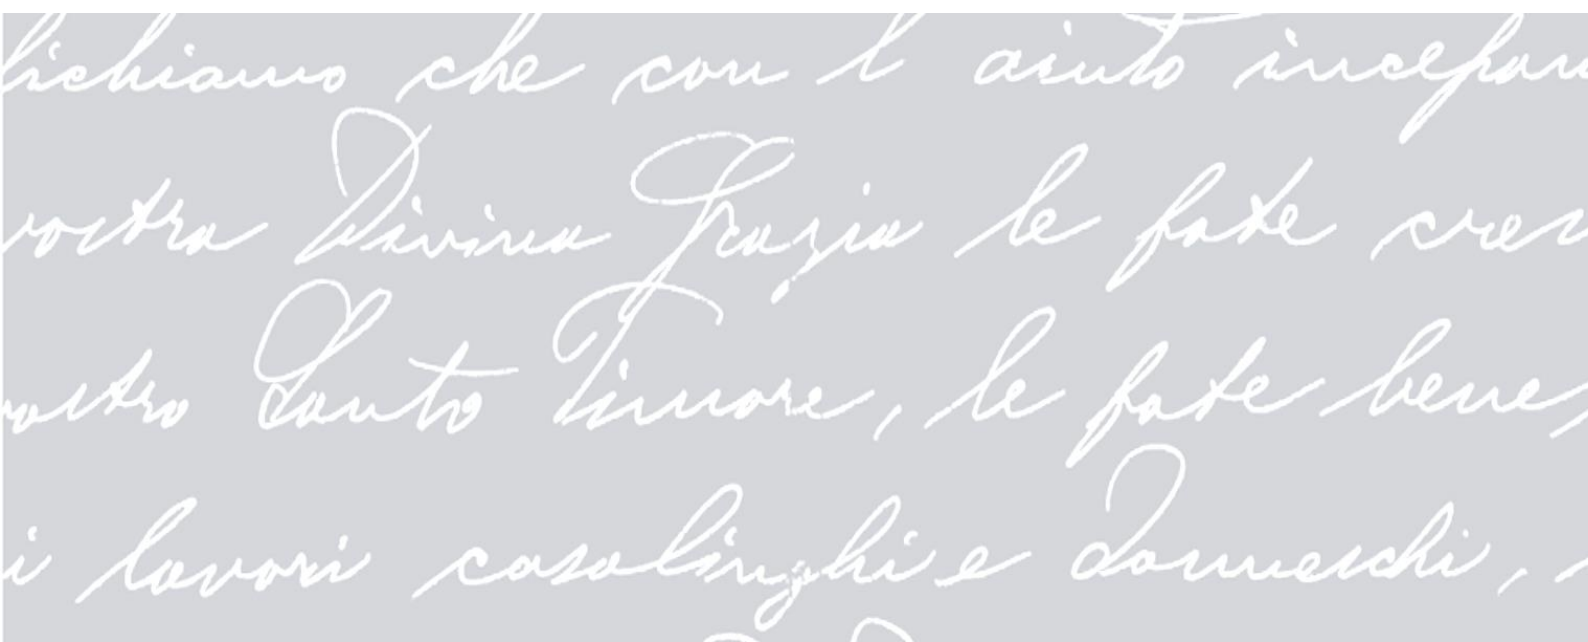 che con l' aiuto
vostra Divina Grazia le fate
vostro Santo Timore, le fate bene,
i lavori casalinghi e Donneschi,